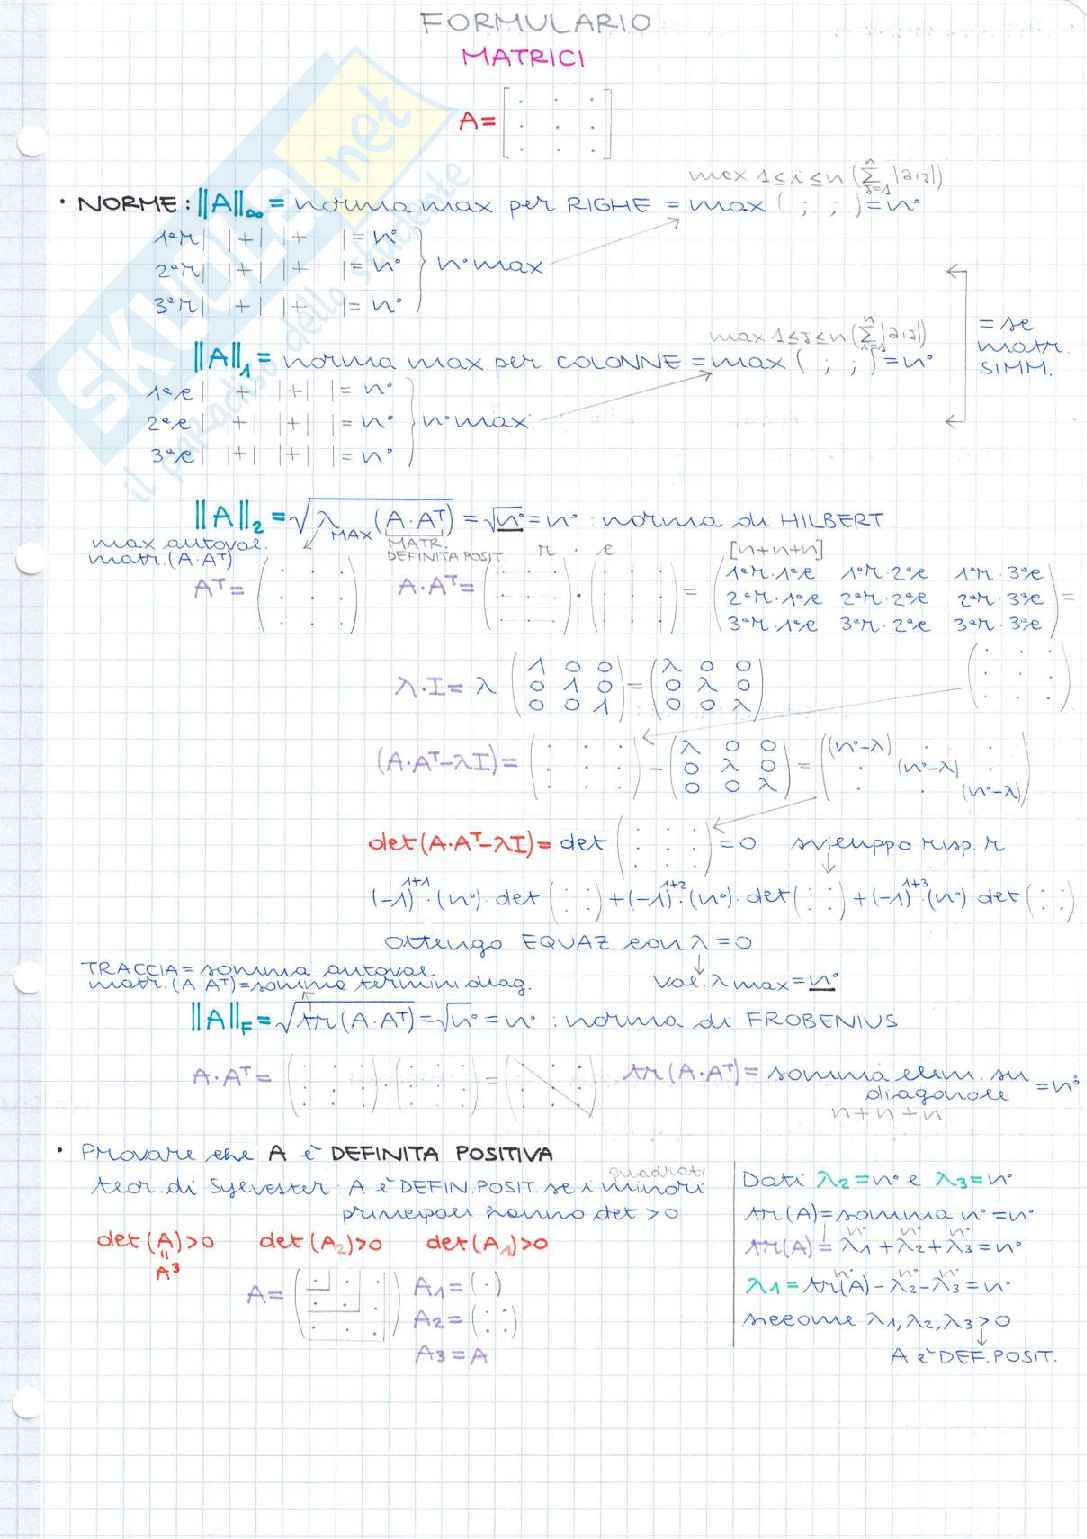 FORMULARIO
MATRICI
A=
max 1≤i≤n (∑ⁿⱼ₌₁ |aij|)
• NORME: ‖A‖∞ = norma max per RIGHE = max ( ; ; ) = n°
1ᵃr | | + | | + | = n°
2ᵃr | | + | | + | = n° } n° max
3ᵃr | | + | | + | = n°
max 1≤j≤n (∑ⁿᵢ₌₁ |aij|)
‖A‖₁ = norma max per COLONNE = max ( ; ; ) = n°
= se
matr.
SIMM.
1ᵃc | | + | | + | | = n°
2ᵃc | | + | | + | | = n° } n° max
3ᵃc | | + | | + | | = n°
‖A‖₂ = √λMAX (A·Aᵀ) = √n° = n° : norma di HILBERT
max autoval.
matr. (A·Aᵀ)
MATR.
DEFINITA POSIT.
r · c
[n+n+n]
Aᵀ = ( ) A·Aᵀ = ( ) · ( ) = (1ᵃr·1ᵃc 1ᵃr·2ᵃc 1ᵃr·3ᵃc
2ᵃr·1ᵃc 2ᵃr·2ᵃc 2ᵃr·3ᵃc
3ᵃr·1ᵃc 3ᵃr·2ᵃc 3ᵃr·3ᵃc) =
λ·I = λ (1 0 0 = (λ 0 0
0 1 0 0 λ 0
0 0 1) 0 0 λ)
(A·Aᵀ-λI) = ( ) - (λ 0 0 = ((n°-λ) . .
0 λ 0 . (n°-λ) .
0 0 λ) . . (n°-λ))
det(A·Aᵀ-λI) = det ( ) = 0 sviluppo risp. r
(-1)¹⁺¹·(n°)·det( ) + (-1)¹⁺²·(n°)·det( ) + (-1)¹⁺³·(n°) det( )
Ottengo EQUAZ con λ = 0
val. λ max = n°
TRACCIA = somma autoval.
matr. (A·Aᵀ) = somma termini diag.
‖A‖F = √tr(A·Aᵀ) = √n° = n° : norma di FROBENIUS
A·Aᵀ = ( )·( ) = ( ) tr(A·Aᵀ) = somma elem. su
diagonale = n°
n + n + n
• Provare che A è DEFINITA POSITIVA
teor. di Sylvester: A è DEFIN. POSIT. se i minori quadrati
principali hanno det > 0
det(A)>0 det(A₂)>0 det(A₁)>0
=
A³
A = ( ) A₁ = (·)
A₂ = (: :)
A₃ = A
Dati λ₂ = n° e λ₃ = n°
tr(A) = somma n° = n°
n° n° n°
tr(A) = λ₁ + λ₂ + λ₃ = n°
n° n° n°
λ₁ = tr(A) - λ₂ - λ₃ = n°
siccome λ₁, λ₂, λ₃ > 0
A è DEF. POSIT.
SKUOLA.net
il paradiso dello studente